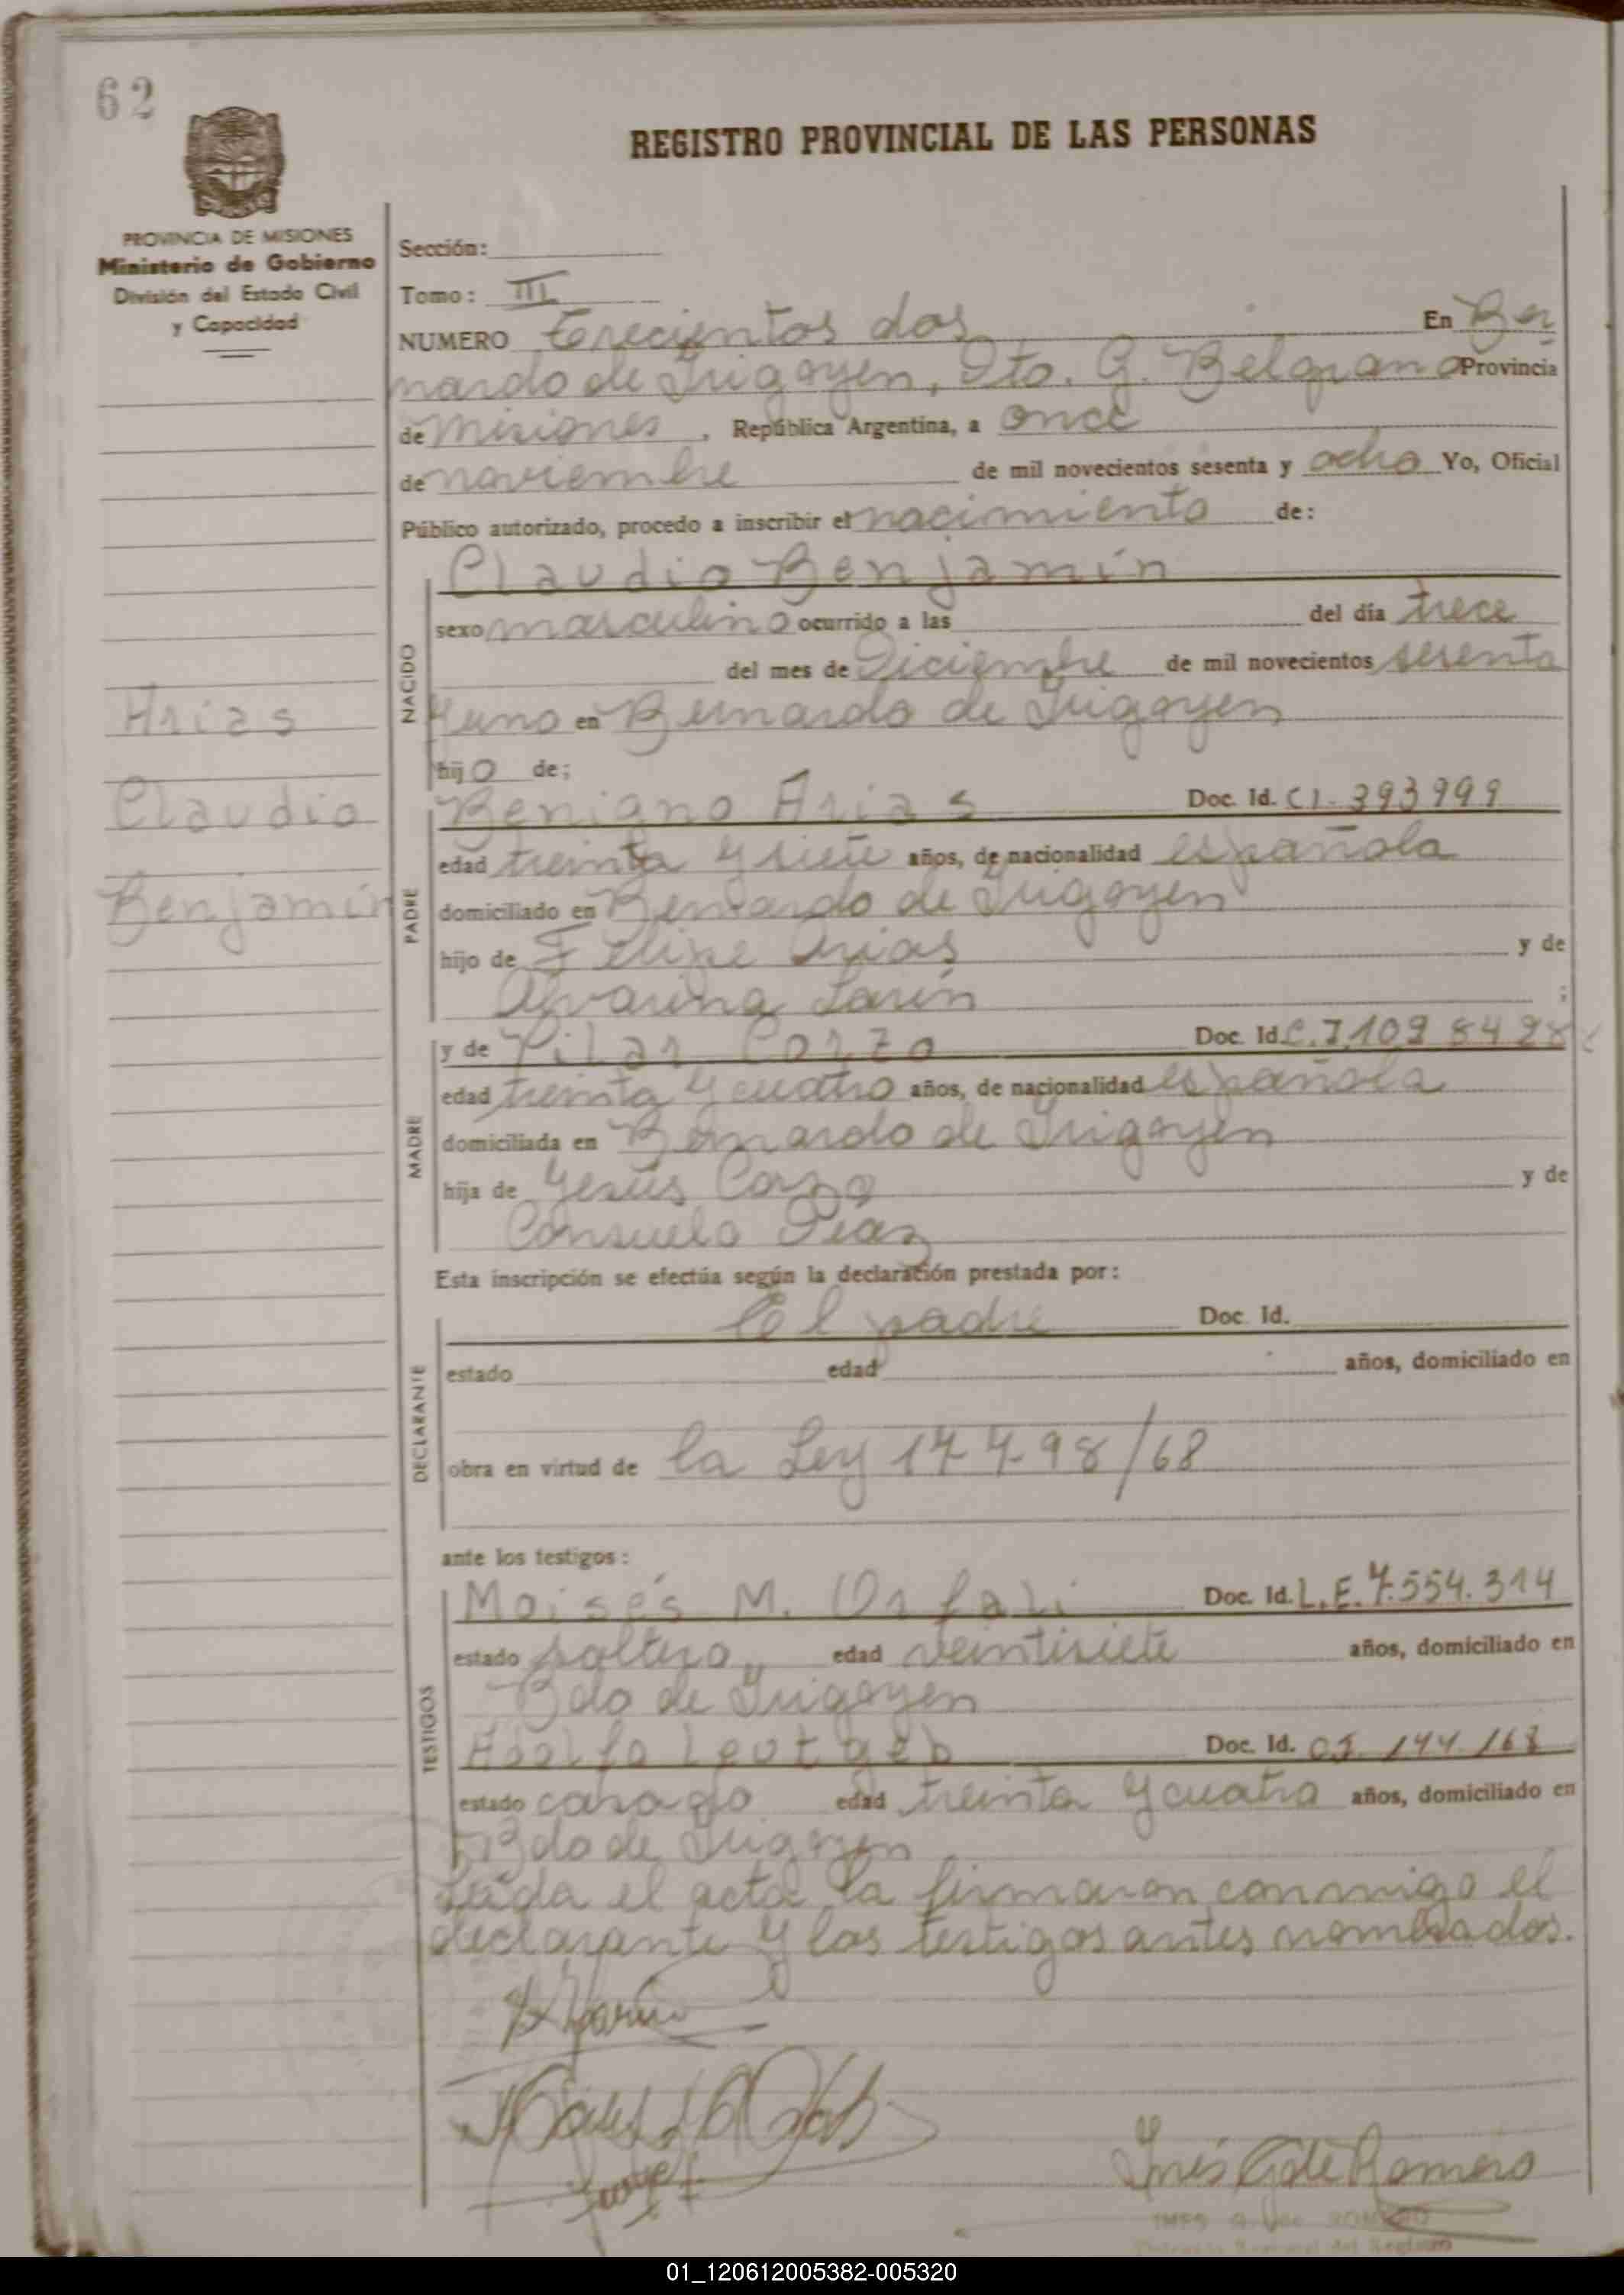 62
REGISTRO PROVINCIAL DE LAS PERSONAS
PROVINCIA DE MISIONES
Ministerio de Gobierno
División del Estado Civil
y Capacidad
Sección:
Tomo: III
NUMERO Trecientos dos En Ber
nardo de Irigoyen, Dto. G. Belgrano Provincia
de Misiones, República Argentina, a once
de noviembre de mil novecientos sesenta y ocho Yo, Oficial
Público autorizado, procedo a inscribir el nacimiento de:
Claudio Benjamín
NACIDO
sexo masculino ocurrido a las del día trece
del mes de Diciembre de mil novecientos sesenta
y uno en Bernardo de Irigoyen
hijo de;
Arias
Claudio
Benjamín
PADRE
Benigno Arias Doc. Id. CI. 393999
edad treinta y siete años, de nacionalidad española
domiciliado en Bernardo de Irigoyen
hijo de Felipe Arias y de
Alvarina Larín ;
MADRE
y de Pilar Corzo Doc. Id. C.I.1098428
edad treinta y cuatro años, de nacionalidad española
domiciliada en Bernardo de Irigoyen
hija de Jesús Corzo y de
Consuelo Díaz
Esta inscripción se efectúa según la declaración prestada por:
DECLARANTE
El padre Doc. Id.
estado edad años, domiciliado en
obra en virtud de la Ley 17798/68
ante los testigos:
TESTIGOS
Moisés M. Orfali Doc. Id. L.E. 7.554.314
estado soltero, edad veintisiete años, domiciliado en
Bdo de Irigoyen
Adolfo Leutgeb Doc. Id. 05.144.168
estado casado edad treinta y cuatro años, domiciliado en
Bdo de Irigoyen
Leída el acta la firmaron conmigo el
declarante y los testigos antes nombrados.
Inés G de Romero
INES G. de ROMERO
01_120612005382-005320